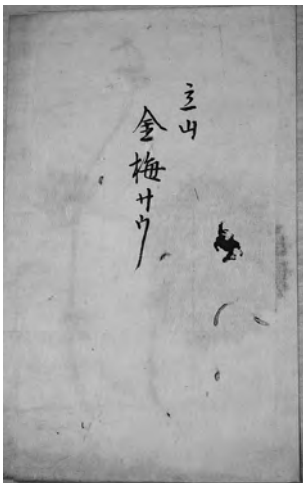 立山
金梅サウ